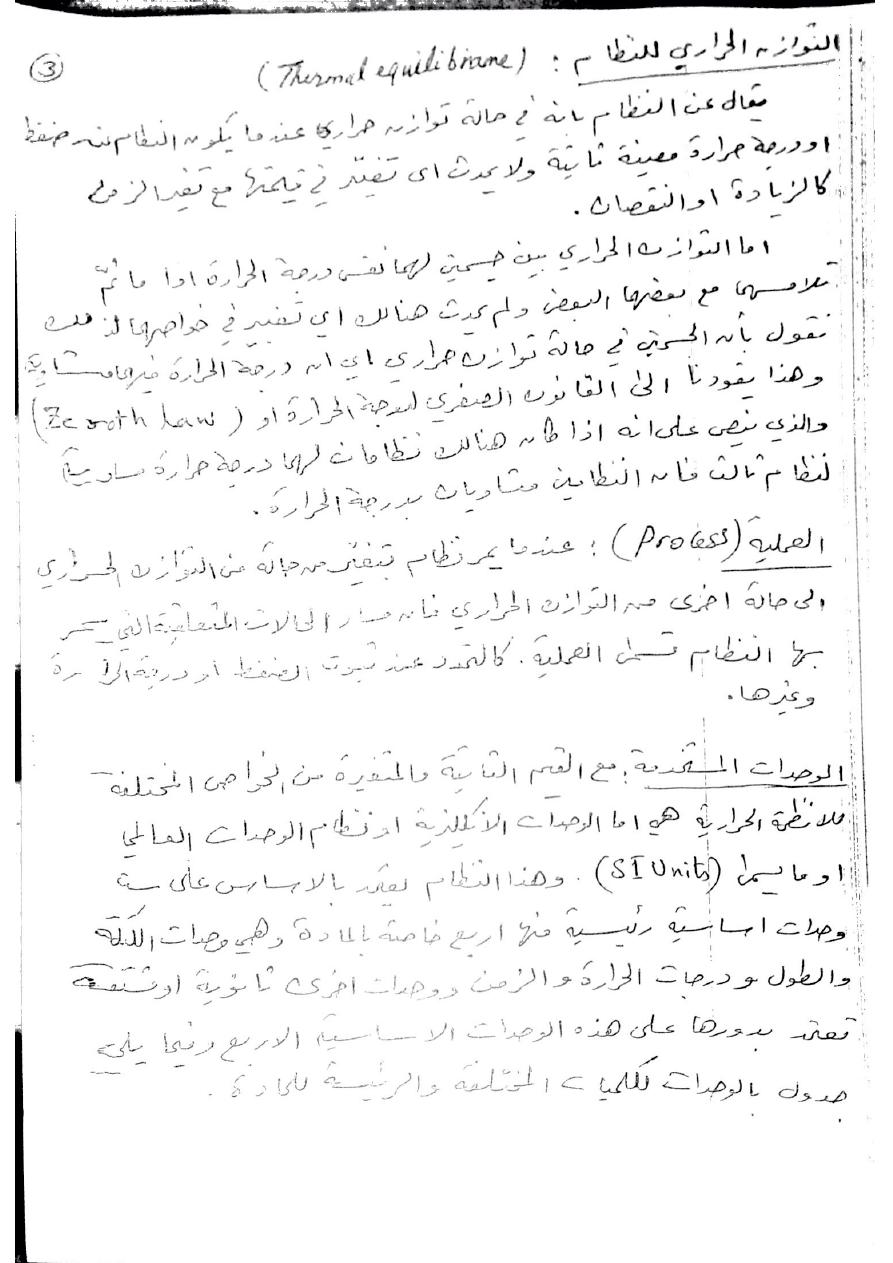 التوازن الحراري للنظام : (Thermal equilibirame)
③
يقال عن النظام بانه في حالة توازن حراري عندما يكون النظام عند ضغط
او درجة حرارة معينة ثابتة ولا يحدث اى تغيّر في قيمتها مع تغير الزمن
كالزيادة او النقصان .
اما التوازن الحراري بين جسمين لهما نفس درجة الحرارة اذا ما تمّ
تلامسهما مع بعضهما البعض ولم يحدث هنالك اي تغيير في خواصهما لذلك
نقول بأن الجسمين في حالة توازن حراري اي ان درجة الحرارة فيهما متساوية
وهذا يقودنا الى القانون الصفري لدرجة الحرارة او (Zeroth Law)
والذي ينص على انه اذا كان هنالك نظامان لهما درجة حرارة مساوية
لنظام ثالث فان النظامين متساويان بدرجة الحرارة .
العملية (Process) : عندما يمر نظام بتغيّر من حالة من التوازن الحراري
الى حالة اخرى من التوازن الحراري فان مسار الحالات المتعاقبة التي يمر
بها النظام تسمى العملية . كالتمدد عند ثبوت الضغط او درجة الحرارة
وغيرها .
الوحدات المستخدمة : مع القيم الثابتة والمتغيرة من الخواص المختلفة
للانظمة الحرارية هي اما الوحدات الانكليزية او نظام الوحدات العالمي
او ما يسمى (SI Units) . وهذا النظام يعتمد بالاساس على ست
وحدات اساسية رئيسية منها اربع خاصة بالمادة وهي وحدات الكتلة
والطول و درجات الحرارة و الزمن ووحدات اخرى ثانوية او مشتقة
تعتمد بدورها على هذه الوحدات الاساسية الاربع وفيما يلي
جدول بالوحدات للكميات المختلفة والرئيسة للمادة .